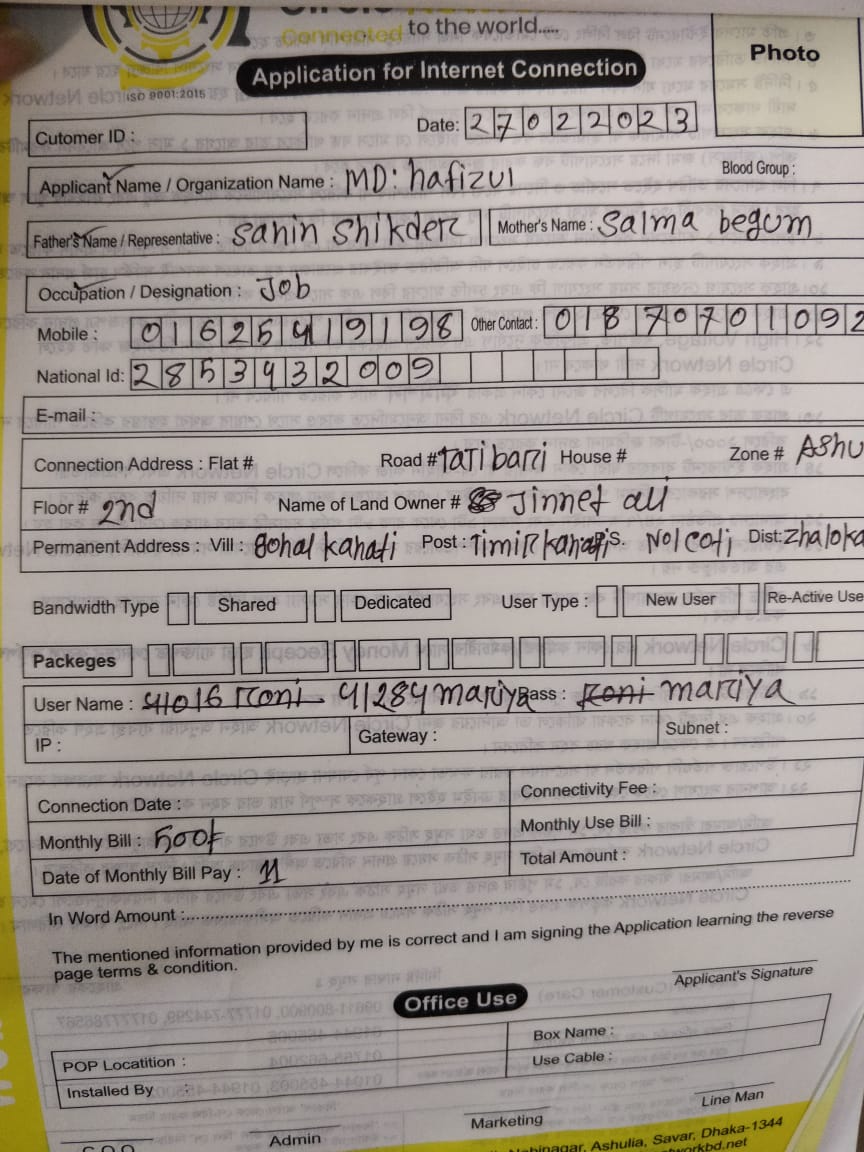 Connected to the world....
Application for Internet Connection
Photo
ISO 9001:2015
Cutomer ID :
Date: 27022023
Applicant Name / Organization Name : MD: hafizul
Blood Group :
Father's Name / Representative : Sahin Shikder Mother's Name : Salma begum
Occupation / Designation : Job
Mobile : 01625419198 Other Contact : 01870701092
National Id: 2853932009
E-mail :
Connection Address : Flat # Road # Tatibarri House # Zone # Ashu
Floor # 2nd Name of Land Owner # Jinnet ali
Permanent Address : Vill : gohalkahati Post : Timirkahati P.S. Nolcoti Dist: Zhaloka
Bandwidth Type Shared Dedicated User Type : New User Re-Active Use
Packeges
User Name : 41016 Roni 41284 mariya Pass : Roni mariya
IP : Gateway : Subnet :
Connection Date : Connectivity Fee :
Monthly Bill : 500 Monthly Use Bill :
Date of Monthly Bill Pay : 11 Total Amount :
In Word Amount :
The mentioned information provided by me is correct and I am signing the Application learning the reverse
page terms & condition.
Applicant's Signature
Office Use
POP Locatition : Box Name :
Installed By : Use Cable :
Admin Marketing Line Man
Ashulia, Savar, Dhaka-1344